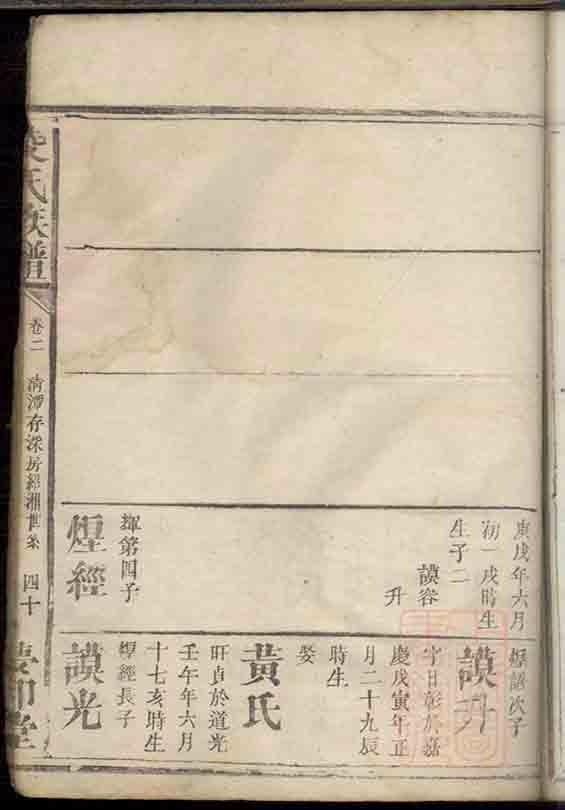 庚戌年六月
初一戌時生
生子二
謨容
升
輝第四子
煌經
次子
謨升
字日彰於嘉
慶戊寅年正
月二十九辰
時生
娶
黃氏
旰貞於道光
壬午年六月
十七亥時生
煌經長子
謨光
氏族譜
卷二
清潭存深房經湘世系
四十